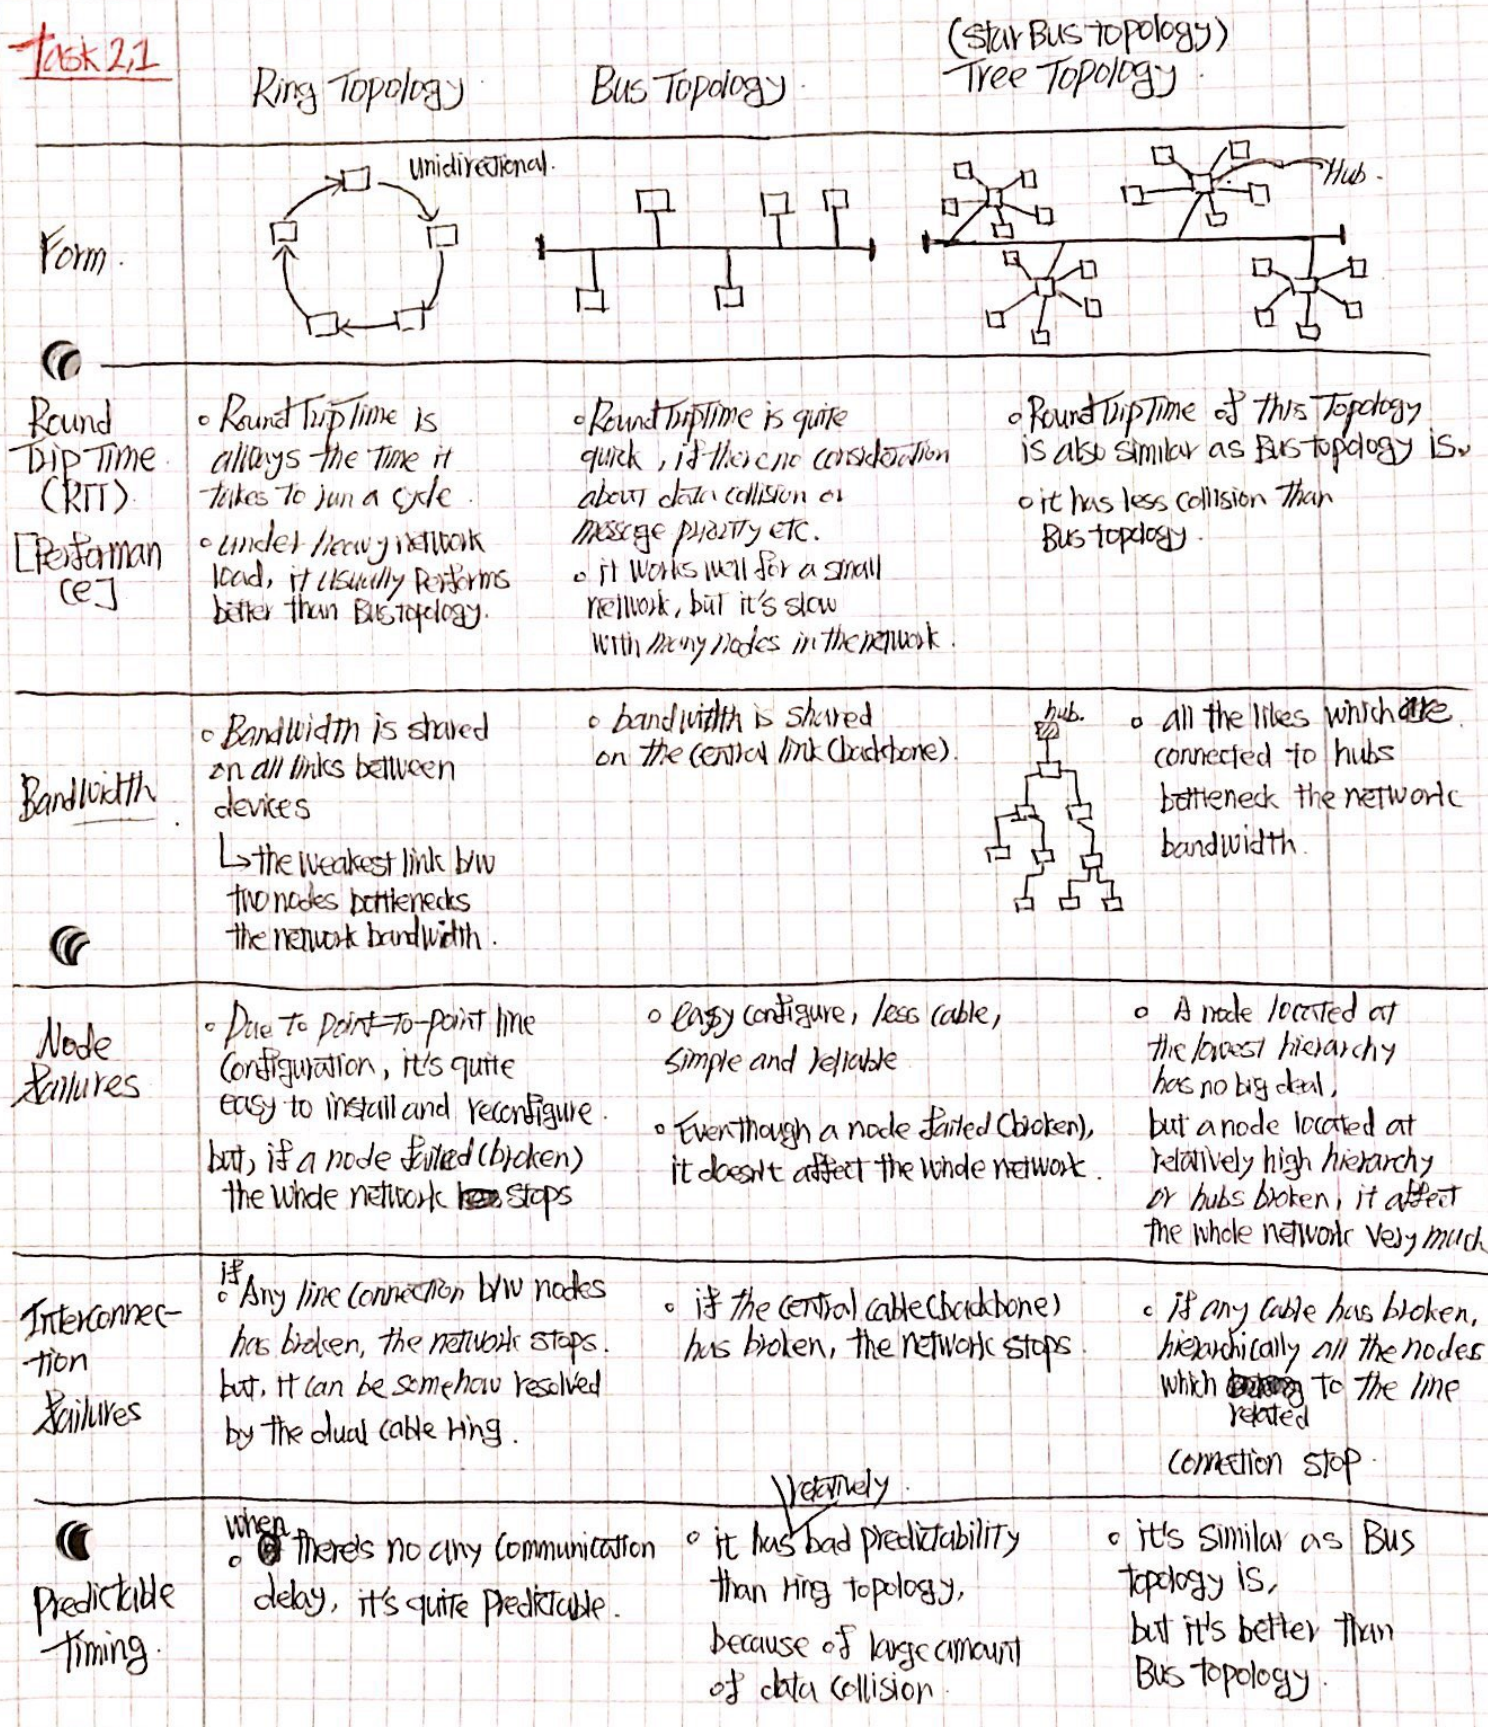 Task 2,1
Ring Topology
Bus Topology
(star Bus topology)
Tree Topology
Form.
unidirectional.
Hub.
Round
Trip Time
(RTT).
[Performan
ce]
Round Trip Time is
always the time it
takes to run a cycle.
under heavy network
load, it usually performs
better than Bus topology.
Round Trip Time is quite
quick, if there no consideration
about data collision or
message priority etc.
it works well for a small
network, but it's slow
with many nodes in the network.
Round Trip Time of this Topology
is also similar as Bus topology is.
it has less collision than
Bus topology.
Bandwidth
Bandwidth is shared
on all links between
devices
↳ the weakest link b/w
two nodes bottlenecks
the network bandwidth.
bandwidth is shared
on the central link (backbone).
hub.
all the likes which are
connected to hubs
bottleneck the network
bandwidth.
Node
failures
Due to point-to-point line
configuration, it's quite
easy to install and reconfigure.
but, if a node failed (broken)
the whole network stops
easy configure, less cable,
simple and reliable
Eventhough a node failed (broken),
it doesn't affect the whole network.
A node located at
the lowest hierarchy
has no big deal,
but a node located at
relatively high hierarchy
or hubs broken, it affect
the whole network very much
Interconnec-
tion
failures
if
Any line connection b/w nodes
has broken, the network stops.
but, it can be somehow resolved
by the dual cable ring.
if the central cable (backbone)
has broken, the network stops.
if any cable has broken,
hierarchically all the nodes
which to the line
related
connection stop.
Predictable
Timing.
when
there's no any communication
delay, it's quite predictable.
relatively.
it has bad predictability
than ring topology,
because of large amount
of data collision.
it's similar as Bus
topology is,
but it's better than
Bus topology.